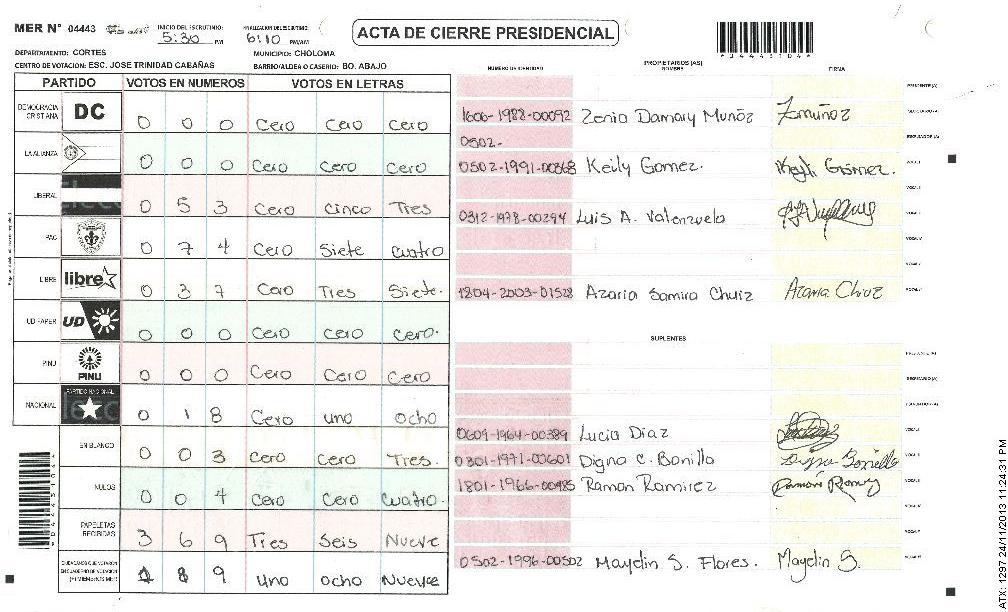 MER N° 04443 INICIO DEL ESCRUTINIO: 5:30 PM FINALIZACION DEL ESCRUTINIO: 6:10 PM/AM
ACTA DE CIERRE PRESIDENCIAL
DEPARTAMENTO: CORTES MUNICIPIO: CHOLOMA
CENTRO DE VOTACION: ESC. JOSE TRINIDAD CABAÑAS BARRIO/ALDEA O CASERIO: BO. ABAJO
PARTIDO VOTOS EN NUMEROS VOTOS EN LETRAS
DEMOCRACIA CRISTIANA DC 0 0 0 Cero Cero Cero
LA ALIANZA 0 0 0 Cero Cero Cero
LIBERAL 0 5 3 Cero Cinco Tres
PAC 0 7 4 Cero Siete Cuatro
LIBRE libre 0 3 7 Cero Tres Siete.
UD FAPER UD 0 0 0 Cero Cero Cero.
PINU PINU 0 0 0 Cero Cero Cero
NACIONAL PARTIDO NACIONAL 0 1 8 Cero uno ocho
EN BLANCO 0 0 3 Cero Cero Tres.
NULOS 0 0 4 Cero Cero Cuatro.
PAPELETAS RECIBIDAS 3 6 9 Tres Seis Nueve
CIUDADANOS QUE VOTARON EN CUADERNO DE VOTACION (+) MIEMBROS MER 1 8 9 Uno ocho Nueve
NUMERO DE IDENTIDAD PROPIETARIOS (AS) NOMBRE FIRMA
PRESIDENTE (A)
1606-1988-00092 Zenia Damary Muñóz Zmuñoz SECRETARIO (A)
0502- ESCRUTADOR (A)
0502-1991-00368 Keily Gomez. Keyli Gómez. VOCAL I
0312-1978-00294 Luis A. Valenzuela
1804-2003-01528 Azaria Samira Chuiz
SUPLENTES
0609-1964-00389 Lucia Diaz
0301-1971-00601 Digna C. Bonilla Digna Bonilla
1801-1966-00485 Ramon Ramirez
0502-1996-00502 Mayelin S. Flores. Mayelin S.
ATX: 1297 24/11/2013 11:24:31 PM